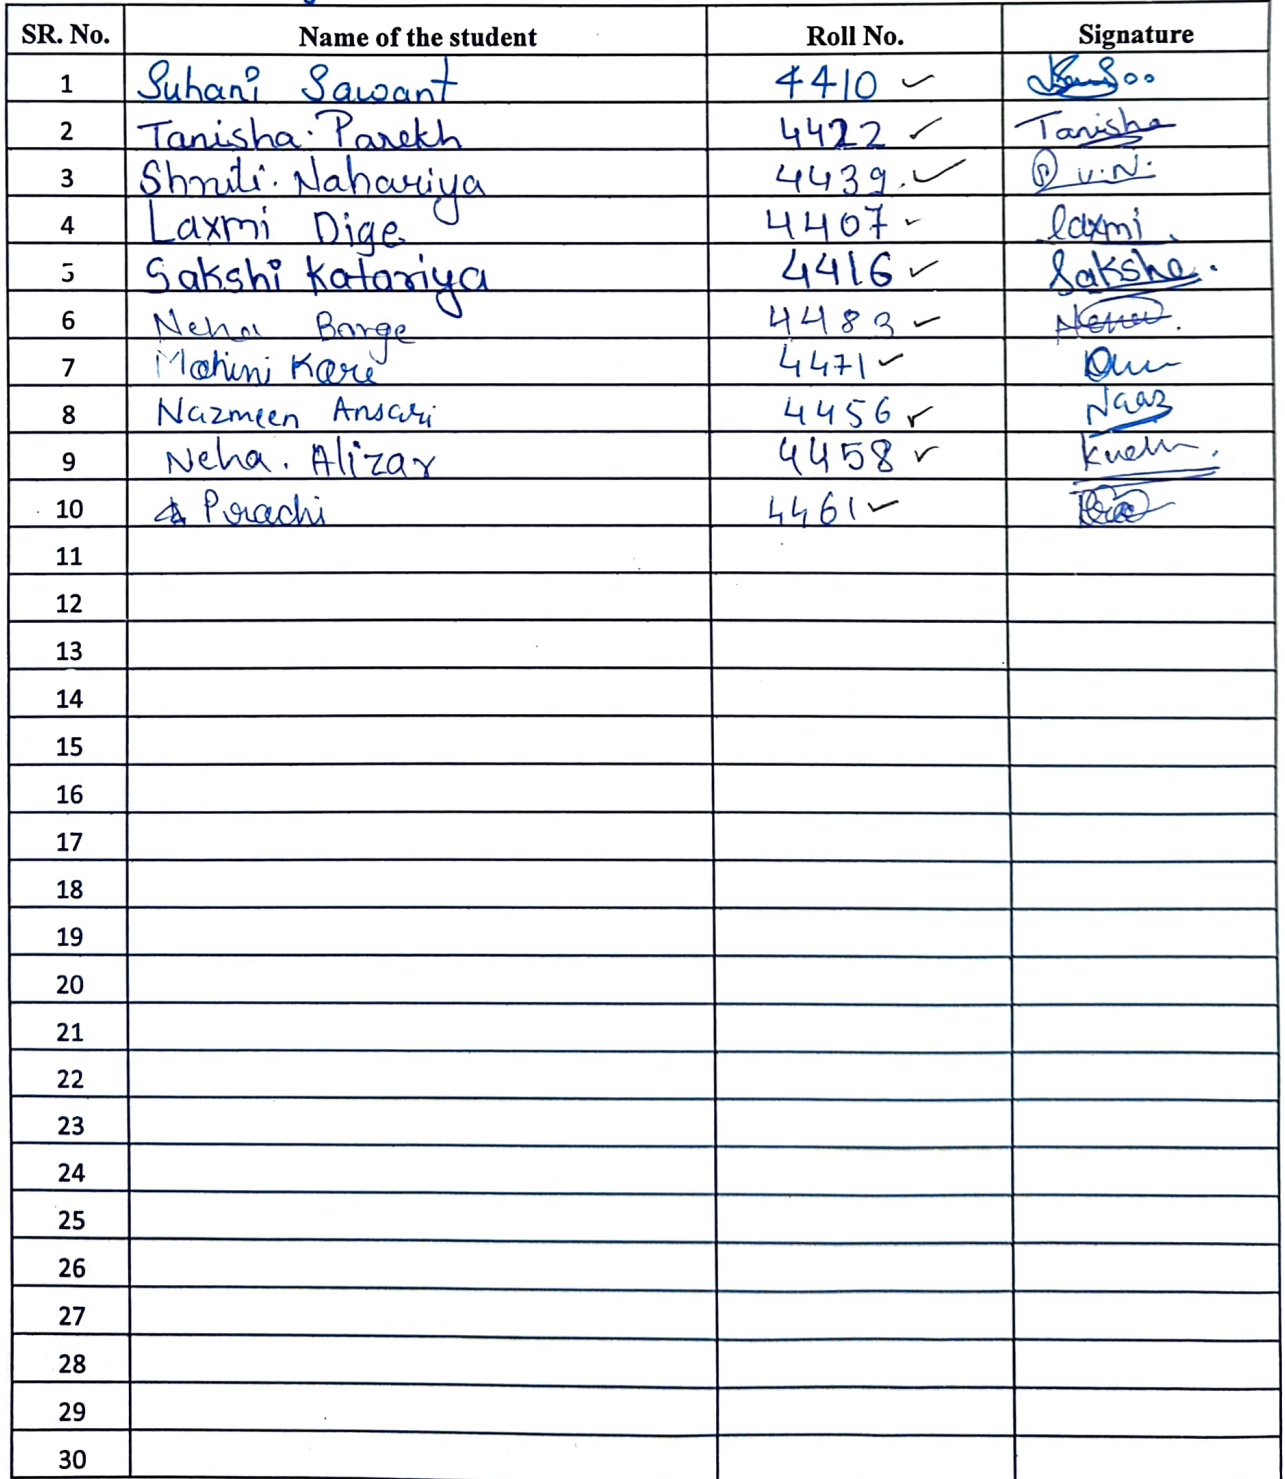 SR. No. Name of the student Roll No. Signature
1 Suhani Sawant 4410 ✓
2 Tanisha. Parekh 4422 ✓ Tanisha
3 Shruti. Nahariya 4439. ✓ V.N.
4 Laxmi Dige 4407 ✓ laxmi
5 Sakshi Katariya 4416 ✓ Sakshe.
6 Neha Barge 4483 ✓ Neha.
7 Mohini Kare 4471 ✓
8 Nazmeen Ansari 4456 ✓ Naaz
9 Neha. Alizar 4458 ✓
10 Prachi 4461 ✓
11
12
13
14
15
16
17
18
19
20
21
22
23
24
25
26
27
28
29
30